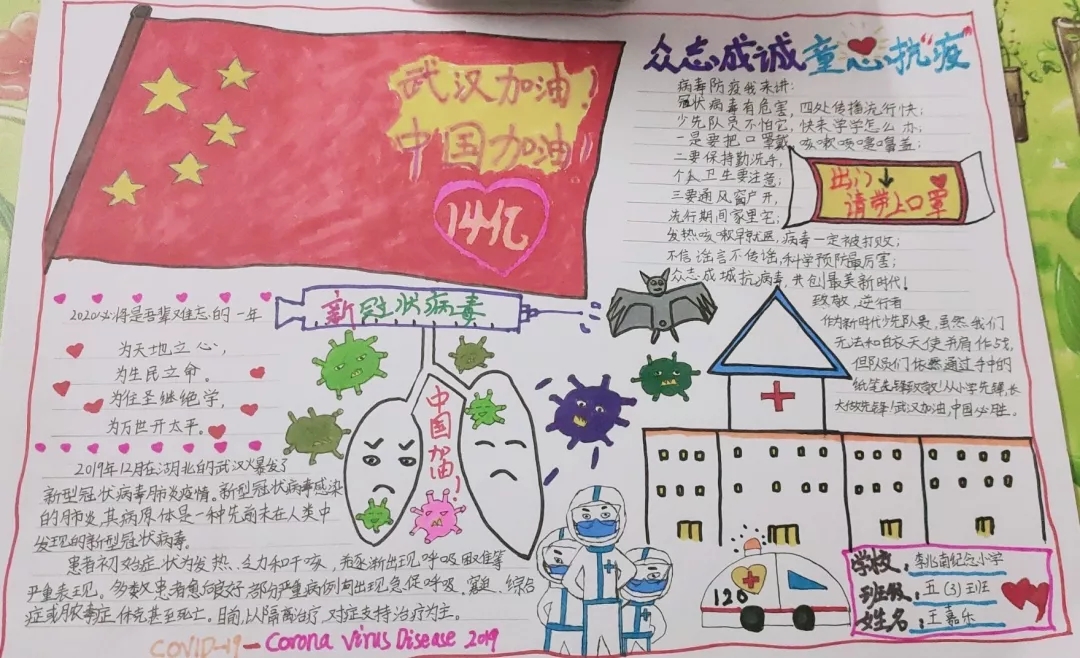 武汉加油!
中国加油!
14亿
众志成诚童心抗"疫"
病毒防疫我来讲:
冠状病毒有危害,四处传播流行快;
少先队员不怕它,快来学学怎么办;
一是要把口罩戴,咳嗽咳嚏嘴盖;
二要保持勤洗手,
个人卫生要注意;
三要通风窗户开,
流行期间家里宅;
发热咳嗽早就医,病毒一定被打败;
不信谣言不传谣,科学预防最厉害;
众志成城抗病毒,共创最美新时代!
出门↓
请带上口罩
致敬,逆行者
作为新时代少先队员,虽然我们
无法和白衣天使并肩作战,
但队员们依然通过手中的
纸笔先锋致敬!从小学先锋,长
大做先锋!武汉加油,中国必胜。
2020必将是吾辈难忘的一年
为天地立心,
为生民立命。
为住圣继绝学,
为万世开太平。
新冠状病毒
中国加油!
2019年12月在湖北的武汉爆发了
新型冠状病毒肺炎疫情。新型冠状病毒感染
的肺炎其病原体是一种先前未在人类中
发现的新型冠状病毒。
患者初始症状为发热、乏力和干咳,并逐渐出现呼吸困难等
严重表现。多数患者愈向良好,部分严重病例可出现急促呼吸、综合
症或脓毒症休克甚至死亡。目前,以隔离治疗,对症支持治疗为主。
COVID-19-Corona Virus Disease 2019
120
学校:李北南纪念小学
班级:五(3)班
姓名:王嘉乐